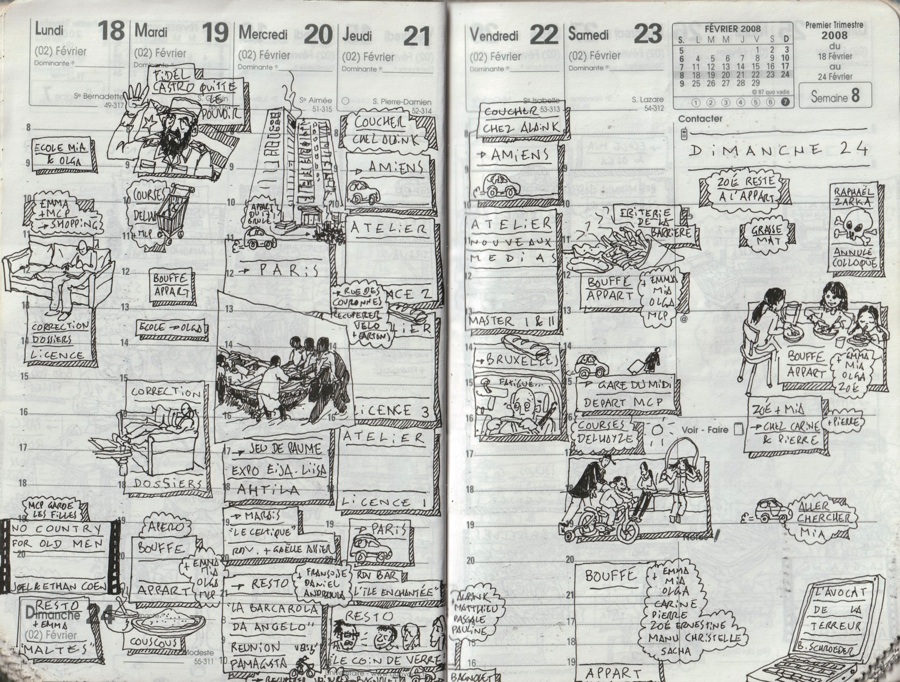 Lundi 18
(02) Février
Dominante
Ste Bernadette
49-317
ECOLE MIA
& OLGA
EMMA
+ MCP
→ SHOPPING
CORRECTION
DOSSIERS
LICENCE
MCP GARDE
LES FILLES
NO COUNTRY
FOR OLD MEN
JOEL & ETHAN COEN
Dimanche 24
(02) Février
RESTO
+ EMMA
"MALTES"
55-311
Mardi 19
(02) Février
Dominante
FIDEL
CASTRO QUITTE
LE
POUVOIR
COURSES
DELHAI
MCP
BOUFFE
APPART
ECOLE → OLGA
CORRECTION
DOSSIERS
APERO
BOUFFE
APPART
+ EMMA
MIA
OLGA
MCP
COUSCOUS
Mercredi 20
(02) Février
Dominante
Ste Aimée
51-315
→ PARIS
→ RUE DES
COURONNES
RECUPERER
VELO
+ CARTONS
→ JEU DE PAUME
EXPO EIJA-LIISA
AHTILA
→ MARAIS
"LE CELTIQUE"
RDV. + GAËLLE
→ RESTO
+ FRANÇOISE
DANIEL
"LA BARCAROLA
DA ANGELO"
REUNION
FAMAGUSTA
Jeudi 21
(02) Février
Dominante
S. Pierre-Damien
52-314
COUCHER
CHEZ ALAIN K
→ AMIENS
ATELIER
LICENCE 3
ATELIER
LICENCE 1
→ PARIS
RDV BAR
"L'ILE ENCHANTÉE"
RESTO
"LE COIN DE VERRE"
Vendredi 22
(02) Février
Dominante
Ste Isabelle
53-313
COUCHER
CHEZ ALAIN K
→ AMIENS
ATELIER
NOUVEAUX
MEDIAS
MASTER I & II
→ BRUXELLES
FATIGUE...
ALAIN K
MATTHIEU
PASCALE
PAULINE
BAGNOLET
Samedi 23
(02) Février
Dominante
S. Lazare
54-312
FRITERIE
DE LA
BARRIERE
BOUFFE
APPART
+ EMMA
MIA
OLGA
MCP
→ GARE DU MIDI
DEPART MCP
COURSES
DELHAIZE
BOUFFE
APPART
+ EMMA
MIA
OLGA
CARINE
PIERRE
ZOÉ ERNESTINE
MANU CHRISTELLE
SACHA
FÉVRIER 2008
S. L M M J V S D
5 1 2 3
6 4 5 6 7 8 9 10
7 11 12 13 14 15 16 17
8 18 19 20 21 22 23 24
9 25 26 27 28 29
① ② ③ ④ ⑤ ⑥ ⑦
Premier Trimestre
2008
du
18 Février
au
24 Février
Semaine 8
Contacter
DIMANCHE 24
ZOÉ RESTE
A L'APPART
GRASSE
MAT
RAPHAËL
ZARKA
ANNULE
COLLOQUE
BOUFFE
APPART
+ EMMA
MIA
OLGA
ZOÉ
ZOÉ + MIA
→ CHEZ CARINE
& PIERRE
+ PIERRE
Voir - Faire
ALLER
CHERCHER
MIA
L'AVOCAT
DE LA
TERREUR
B. SCHROEDER